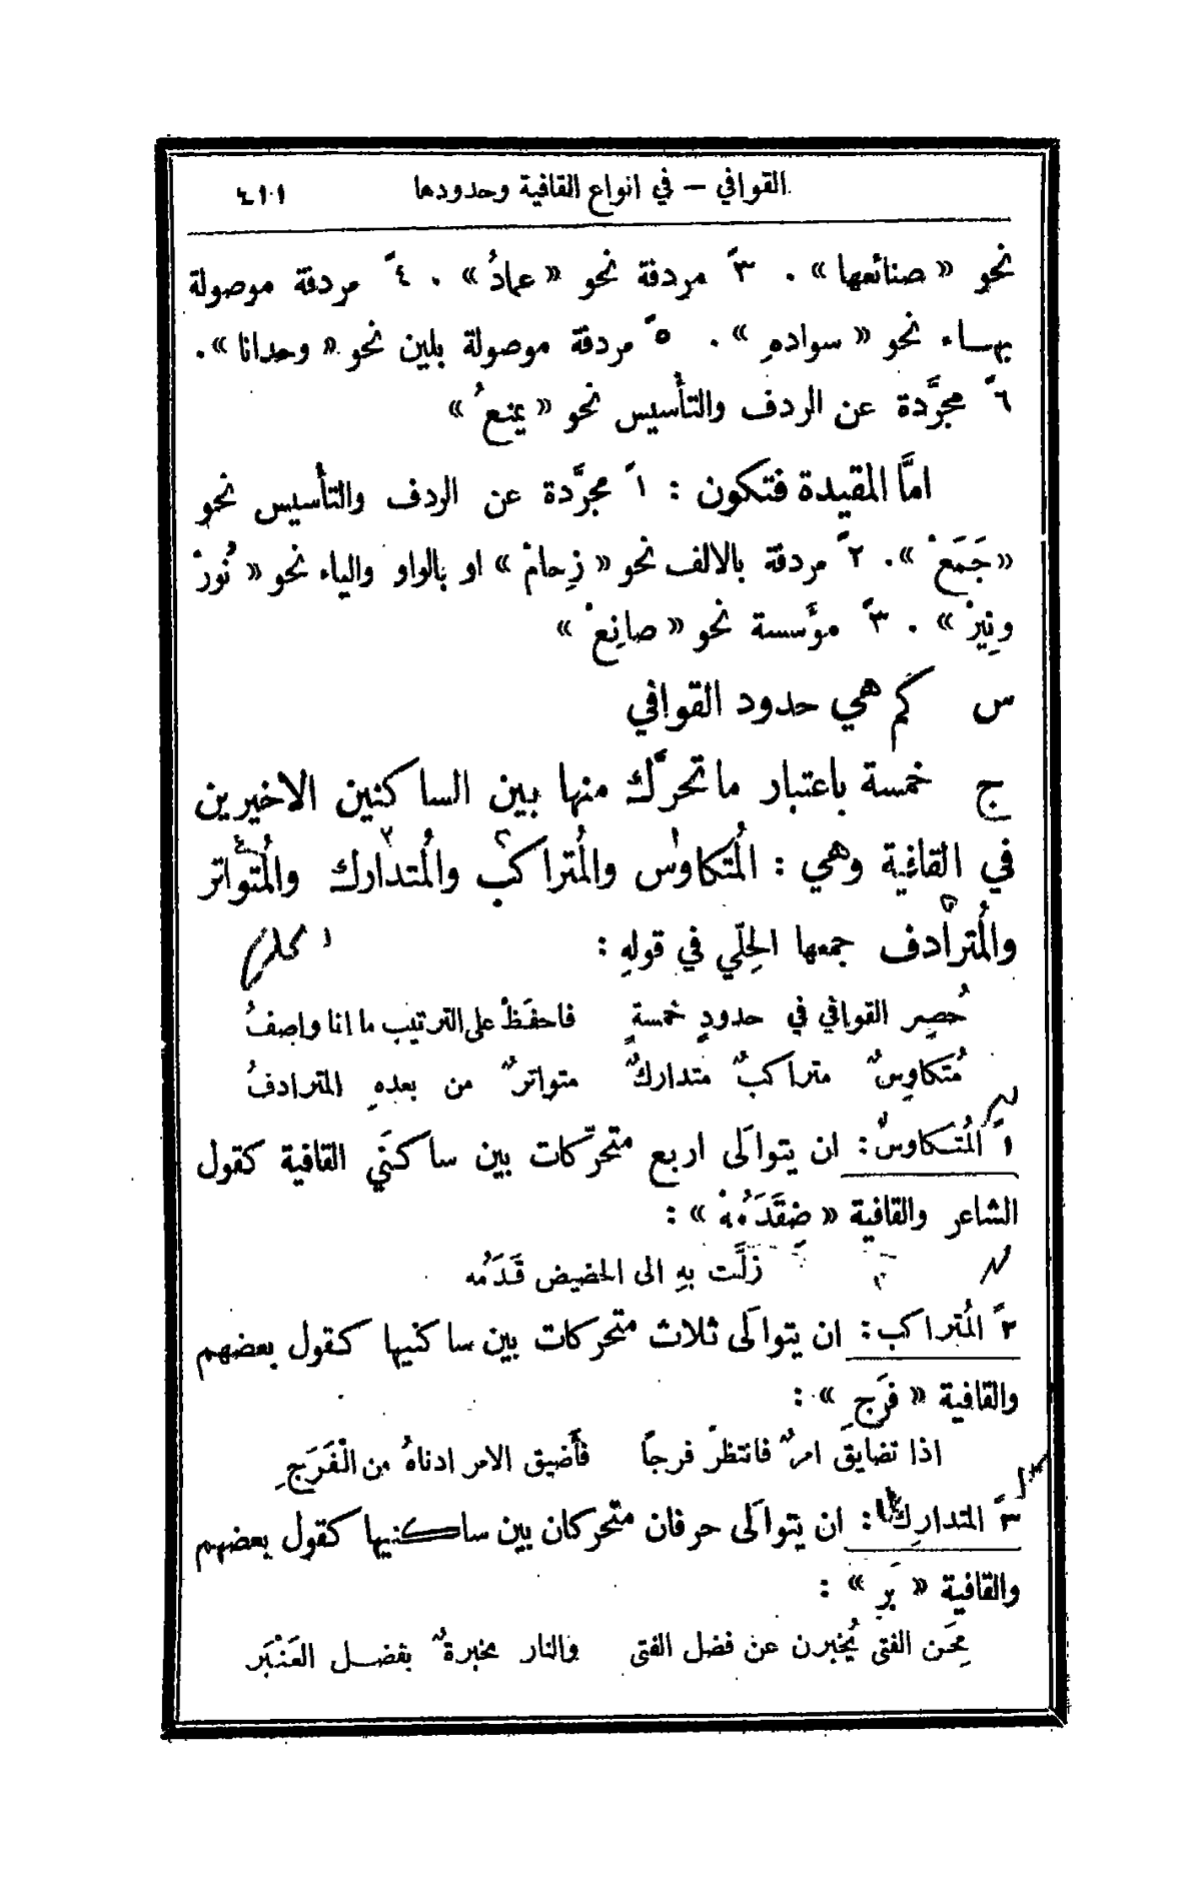 القوافي – في انواع القافية وحدودها ٤١١
نحو « صنائعها » . ٣ً مردفة نحو « عمادُ » . ٤ً مردفة موصولة
بهــاء نحو « سوادهِ » . ٥ً مردفة موصولة بلين نحو « وحدانا » .
٦ً مجرَّدة عن الردف والتأسيس نحو « يمنعُ »
امَّا المقيدة فتكون : ١ً مجرَّدة عن الردف والتأسيس نحو
« جَمَعْ » . ٢ً مردفة بالالف نحو « زِحامْ » او بالواو والياء نحو « نُورْ
ونِيرْ » . ٣ً مؤسسة نحو « صانِعْ »
س كم هي حدود القوافي
ج خمسة باعتبار ما تحرَّك منها بين الساكنين الاخيرين
في القافية وهي : المُتكاوس والمُتراكب والمُتدارك والمُتواتر
والمُترادف جمعها الحِلّي في قولهِ :
حُصِر القوافي في حدودٍ خمسةٍ فاحفَظْ على الترتيب ما انا واصفُ
مُتَكاوِسٌ متراكبٌ متداركٌ متواترٌ من بعدهِ المترادفُ
١ً المُتـكاوسُ : ان يتوالَى اربع متحرّكات بين ساكنَي القافية كقول
الشاعر والقافية « ضِقَدَمُهْ » :
زلَّت بهِ الى الحضيض قَدَمُه
٢ً المُتراكب : ان يتوالَى ثلاث متحركات بين ساكنيها كقول بعضهم
والقافية « فَرَجِ » :
اذا تضايقَ امرٌ فانتظرْ فرجاً فأَضيق الامر ادناهُ من الْفَرَجِ
٣ً المتدارِك : ان يتوالَى حرفان متحركان بين ساكنيها كقول بعضهم
والقافية « بَرِ » :
مِحَن الفتى يُخبرن عن فضل الفتى والنار مخبرةٌ بفضــل العَنْبَرِ